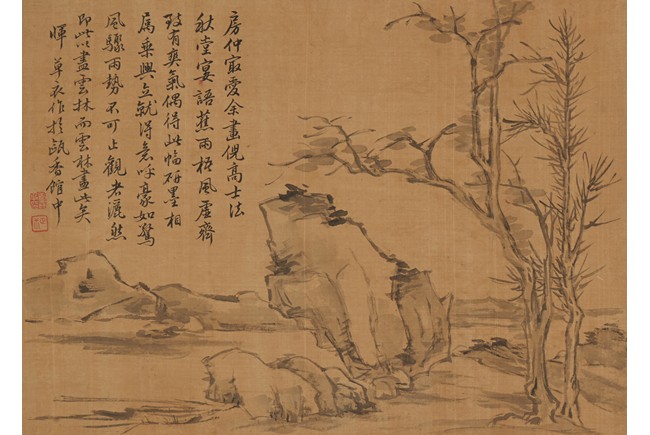 房仲最愛余畫倪高士法
秋堂宴語蕉雨梧風虛齋
頗有爽氣偶得此幅研墨相
屬乘興立就得意呼豪如驚
風驟雨勢不可止觀者灑然
即此以盡雲林而雲林盡此矣
惲草衣作於甌香館中